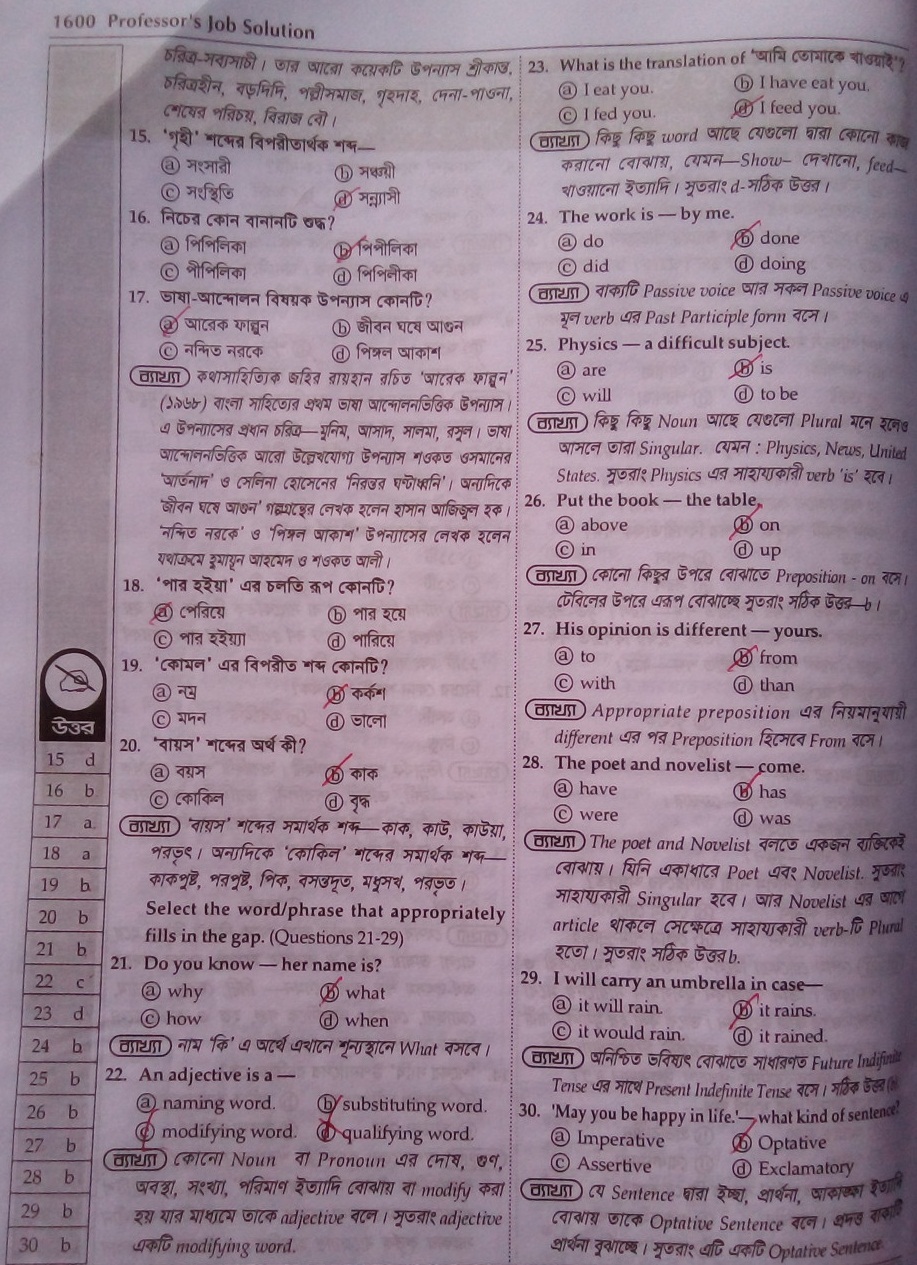 1600 Professor's Job Solution
চরিত্র-সব্যসাচী। তার আরো কয়েকটি উপন্যাস শ্রীকান্ত,
চরিত্রহীন, বড়দিদি, পল্লীসমাজ, গৃহদাহ, দেনা-পাওনা,
শেষের পরিচয়, বিরাজ বৌ।
15. 'গৃহী' শব্দের বিপরীতার্থক শব্দ—
ⓐ সংসারী ⓑ সঞ্চয়ী
ⓒ সংস্থিতি ⓓ সন্ন্যাসী
16. নিচের কোন বানানটি শুদ্ধ?
ⓐ পিপিলিকা ⓑ পিপীলিকা
ⓒ পীপিলিকা ⓓ পিপিলীকা
17. ভাষা-আন্দোলন বিষয়ক উপন্যাস কোনটি?
ⓐ আরেক ফাল্গুন ⓑ জীবন ঘষে আগুন
ⓒ নন্দিত নরকে ⓓ পিঙ্গল আকাশ
ব্যাখ্যা কথাসাহিত্যিক জহির রায়হান রচিত 'আরেক ফাল্গুন'
(১৯৬৮) বাংলা সাহিত্যের প্রথম ভাষা আন্দোলনভিত্তিক উপন্যাস।
এ উপন্যাসের প্রধান চরিত্র—মুনিম, আসাদ, সালমা, রসুল। ভাষা
আন্দোলনভিত্তিক আরো উল্লেখযোগ্য উপন্যাস শওকত ওসমানের
'আর্তনাদ' ও সেলিনা হোসেনের 'নিরন্তর ঘণ্টাধ্বনি'। অন্যদিকে
'জীবন ঘষে আগুন' গল্পগ্রন্থের লেখক হলেন হাসান আজিজুল হক।
'নন্দিত নরকে' ও 'পিঙ্গল আকাশ' উপন্যাসের লেখক হলেন
যথাক্রমে হুমায়ূন আহমেদ ও শওকত আলী।
18. 'পার হইয়া' এর চলতি রূপ কোনটি?
ⓐ পেরিয়ে ⓑ পার হয়ে
ⓒ পার হইয়্যা ⓓ পারিয়ে
19. 'কোমল' এর বিপরীত শব্দ কোনটি?
ⓐ নম্র ⓑ কর্কশ
ⓒ মদন ⓓ ভালো
20. 'বায়স' শব্দের অর্থ কী?
ⓐ বয়স ⓑ কাক
ⓒ কোকিল ⓓ বৃদ্ধ
ব্যাখ্যা 'বায়স' শব্দের সমার্থক শব্দ—কাক, কাউ, কাউয়া,
পরভৃৎ। অন্যদিকে 'কোকিল' শব্দের সমার্থক শব্দ—
কাকপুষ্ট, পরপুষ্ট, পিক, বসন্তদূত, মধুসখ, পরভৃত।
Select the word/phrase that appropriately
fills in the gap. (Questions 21-29)
21. Do you know — her name is?
ⓐ why ⓑ what
ⓒ how ⓓ when
ব্যাখ্যা নাম 'কি' এ অর্থে এখানে শূন্যস্থানে What বসবে।
22. An adjective is a —
ⓐ naming word. ⓑ substituting word.
ⓒ modifying word. ⓓ qualifying word.
ব্যাখ্যা কোনো Noun বা Pronoun এর দোষ, গুণ,
অবস্থা, সংখ্যা, পরিমাণ ইত্যাদি বোঝায় বা modify করা
হয় যার মাধ্যমে তাকে adjective বলে। সুতরাং adjective
একটি modifying word.
উত্তর
15 d
16 b
17 a
18 a
19 b
20 b
21 b
22 c
23 d
24 b
25 b
26 b
27 b
28 b
29 b
30 b
23. What is the translation of 'আমি তোমাকে খাওয়াই'?
ⓐ I eat you. ⓑ I have eat you.
ⓒ I fed you. ⓓ I feed you.
ব্যাখ্যা কিছু কিছু word আছে যেগুলো দ্বারা কোনো কাজ
করানো বোঝায়, যেমন—Show– দেখানো, feed—
খাওয়ানো ইত্যাদি। সুতরাং d-সঠিক উত্তর।
24. The work is — by me.
ⓐ do ⓑ done
ⓒ did ⓓ doing
ব্যাখ্যা বাক্যটি Passive voice আর সকল Passive voice এ
মূল verb এর Past Participle form বসে।
25. Physics — a difficult subject.
ⓐ are ⓑ is
ⓒ will ⓓ to be
ব্যাখ্যা কিছু কিছু Noun আছে যেগুলো Plural মনে হলেও
আসলে তারা Singular. যেমন : Physics, News, United
States. সুতরাং Physics এর সাহায্যকারী verb 'is' হবে।
26. Put the book — the table.
ⓐ above ⓑ on
ⓒ in ⓓ up
ব্যাখ্যা কোনো কিছুর উপরে বোঝাতে Preposition - on বসে।
টেবিলের উপরে এরূপ বোঝাচ্ছে সুতরাং সঠিক উত্তর—b।
27. His opinion is different — yours.
ⓐ to ⓑ from
ⓒ with ⓓ than
ব্যাখ্যা Appropriate preposition এর নিয়মানুযায়ী
different এর পর Preposition হিসেবে From বসে।
28. The poet and novelist — come.
ⓐ have ⓑ has
ⓒ were ⓓ was
ব্যাখ্যা The poet and Novelist বলতে একজন ব্যক্তিকেই
বোঝায়। যিনি একাধারে Poet এবং Novelist. সুতরাং
সাহায্যকারী Singular হবে। আর Novelist এর আগে
article থাকলে সেক্ষেত্রে সাহায্যকারী verb-টি Plural
হতো। সুতরাং সঠিক উত্তর b.
29. I will carry an umbrella in case—
ⓐ it will rain. ⓑ it rains.
ⓒ it would rain. ⓓ it rained.
ব্যাখ্যা অনিশ্চিত ভবিষ্যৎ বোঝাতে সাধারণত Future Indifinite
Tense এর সাথে Present Indefinite Tense বসে। সঠিক উত্তর (b)
30. 'May you be happy in life.'— what kind of sentence?
ⓐ Imperative ⓑ Optative
ⓒ Assertive ⓓ Exclamatory
ব্যাখ্যা যে Sentence দ্বারা ইচ্ছা, প্রার্থনা, আকাঙ্ক্ষা ইত্যাদি
বোঝায় তাকে Optative Sentence বলে। প্রদত্ত বাক্যটি
প্রার্থনা বুঝাচ্ছে। সুতরাং এটি একটি Optative Sentence.